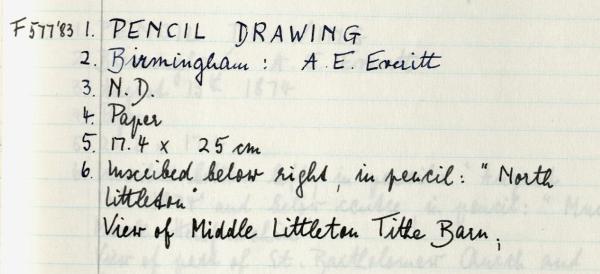 F577'83 1. PENCIL DRAWING
2. Birmingham: A. E. Everitt
3. N.D.
4. Paper
5. 17.4 x 25 cm
6. Inscribed below right, in pencil: "North
Littleton"
View of Middle Littleton Tithe Barn;